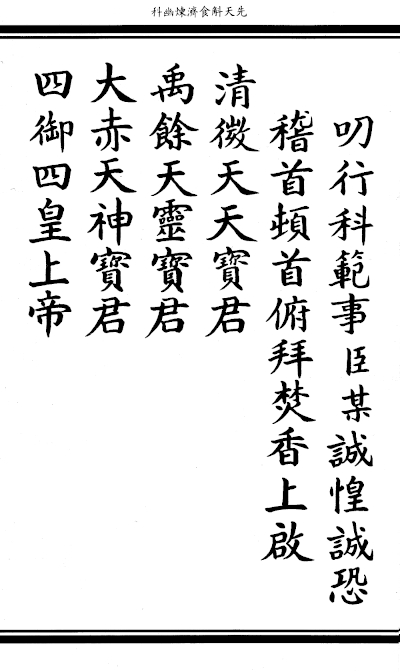 先天斛食濟煉幽科
叨行科範事臣某誠惶誠恐
稽首頓首俯拜焚香上啟
清微天天寶君
禹餘天靈寶君
大赤天神寶君
四御四皇上帝